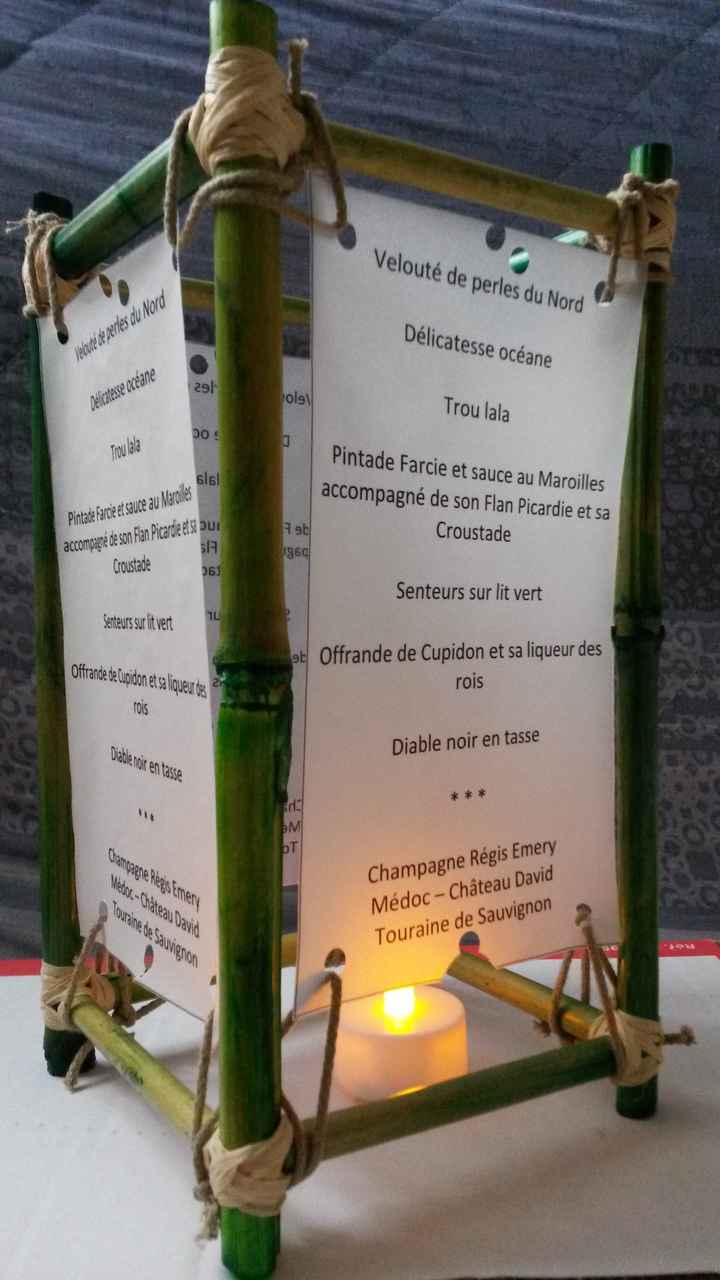 Velouté de perles du Nord
Délicatesse océane
Trou lala
Pintade Farcie et sauce au Maroilles
accompagné de son Flan Picardie et sa
Croustade
Senteurs sur lit vert
Offrande de Cupidon et sa liqueur des
rois
Diable noir en tasse
* * *
Champagne Régis Emery
Médoc – Château David
Touraine de Sauvignon
Velouté de perles du Nord
Délicatesse océane
Trou lala
Pintade Farcie et sauce au Maroilles
accompagné de son Flan Picardie et sa
Croustade
Senteurs sur lit vert
Offrande de Cupidon et sa liqueur des
rois
Diable noir en tasse
* * *
Champagne Régis Emery
Médoc – Château David
Touraine de Sauvignon